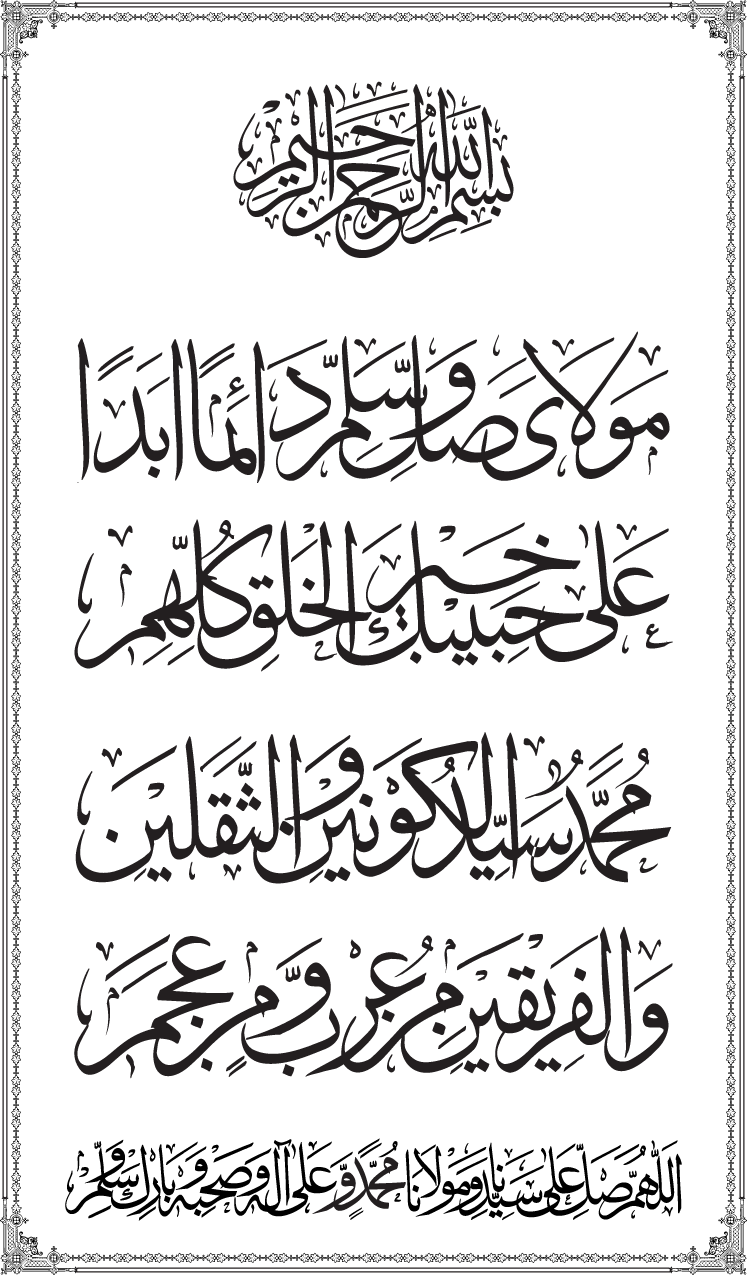 بسم الله الرحمن الرحيم
مَولَاىَ صَلِّ وَسَلِّم دَائِمًا اَبَدًا
عَلٰى حَبِيبِكَ خَيرِ الخَلقِ كُلِّهِمِ
مُحَمَّدٌ سَيِّدُ الكَونَينِ وَالثَّقَلَينِ
وَالفَرِيقَينِ مِن عُربٍ وَّمِن عَجَمِ
اَللّٰهُمَّ صَلِّ عَلٰى سَيِّدِنَا وَمَولَانَا مُحَمَّدٍ وَّعَلٰى آلِهٖ وَصَحبِهٖ وَبَارِك وَسَلِّم